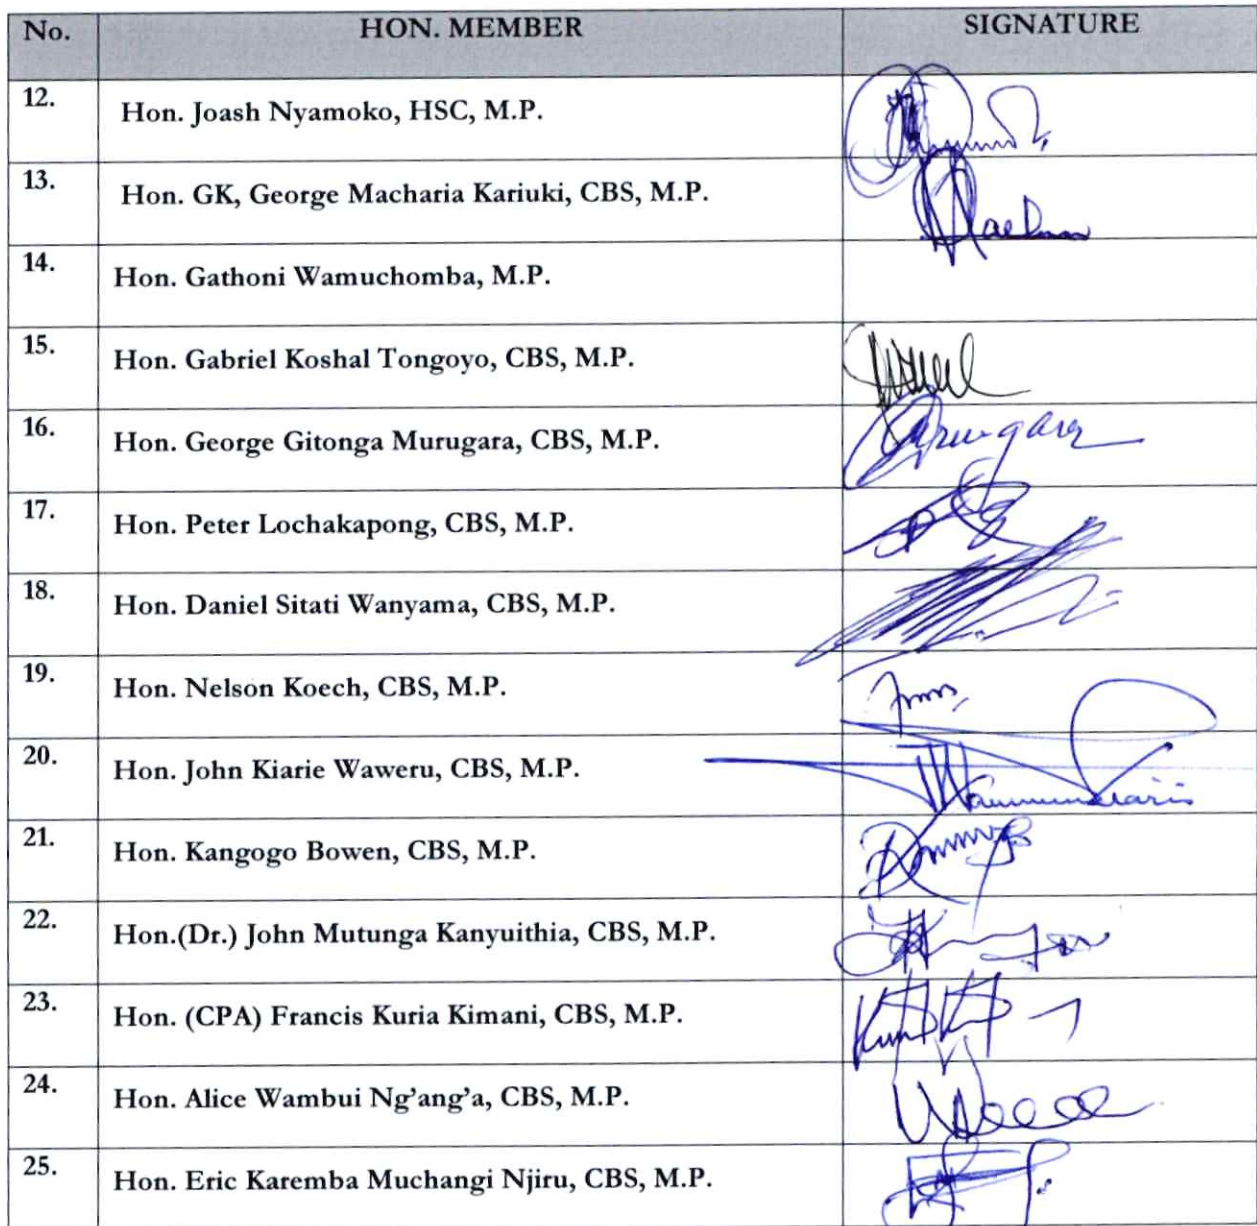 No. HON. MEMBER SIGNATURE
12. Hon. Joash Nyamoko, HSC, M.P.
13. Hon. GK, George Macharia Kariuki, CBS, M.P.
14. Hon. Gathoni Wamuchomba, M.P.
15. Hon. Gabriel Koshal Tongoyo, CBS, M.P.
16. Hon. George Gitonga Murugara, CBS, M.P.
17. Hon. Peter Lochakapong, CBS, M.P.
18. Hon. Daniel Sitati Wanyama, CBS, M.P.
19. Hon. Nelson Koech, CBS, M.P.
20. Hon. John Kiarie Waweru, CBS, M.P.
21. Hon. Kangogo Bowen, CBS, M.P.
22. Hon.(Dr.) John Mutunga Kanyuithia, CBS, M.P.
23. Hon. (CPA) Francis Kuria Kimani, CBS, M.P.
24. Hon. Alice Wambui Ng'ang'a, CBS, M.P.
25. Hon. Eric Karemba Muchangi Njiru, CBS, M.P.